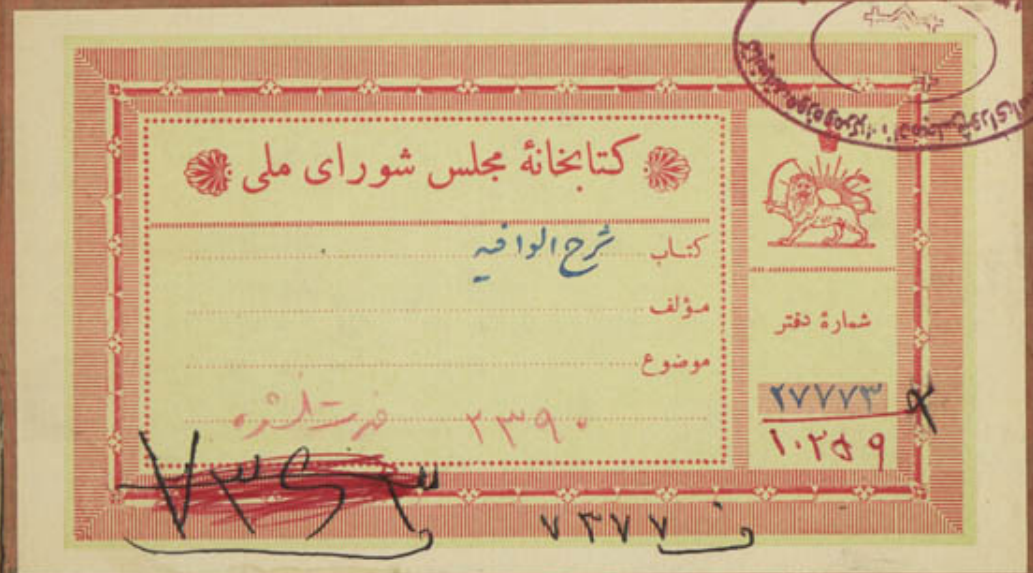 کتابخانهٔ مجلس شورای ملی
کتاب شرح الوافیه
مؤلف
موضوع
۲۳۹۰ فهرست نشده
شمارهٔ دفتر
۲۷۷۷۳
۱۰۲۵۹
ف ۷۳۷۷